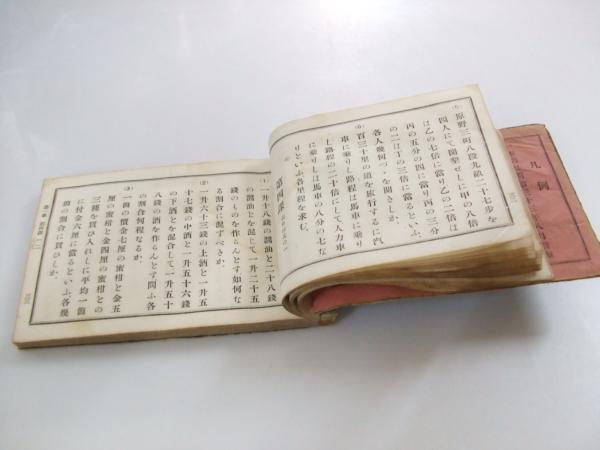 (5)
原野三町八段九畝二十七步を
四人にて開墾せしに甲の八倍
は乙の七倍に當り乙の二倍は
丙の五分の四に當り丙の三分
の二は丁の三倍に當るといふ、
各人幾何づゝを開きしか。
(6)
百三十里の道を旅行するに汽
車に乘りし路程は馬車に乘り
し路程の二十倍にして人力車
に乘りしは馬車の八分の七な
りといふ各里程を求む。
第四課
(1)
一升十八錢の醬油と二十八錢
の醬油とを混じて一升二十五
錢のものを作らんとす如何な
る割合に混ずべきか。
(2)
一升六十三錢の上酒と一升五
十七錢の中酒と一升五十六錢
の下酒とを混合して一升五十
八錢の酒を作らんとす問ふ各
の割合何程なるか。
(3)
一個の價金七厘の蜜柑と金五
厘の蜜柑と金四厘の蜜柑との
三種を買ひ入れしに平均一個
に付金六厘に當るといふ各幾
個の割合に買ひしか。
凡例